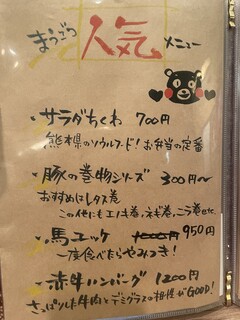 まっごっ
人気 メニュー
・サラダちくわ 700円
熊本のソウルフード！お弁当の定番
・豚の巻物シリーズ 300円〜
おすすめはレタス巻
この他にもエノキ巻、ネギ巻、ニラ巻etc.
・馬ユッケ 1000円 950円
一度食べたらやみつき！
・赤牛ハンバーグ 1200円
さっぱりした牛肉とデミグラスの相性がGOOD！